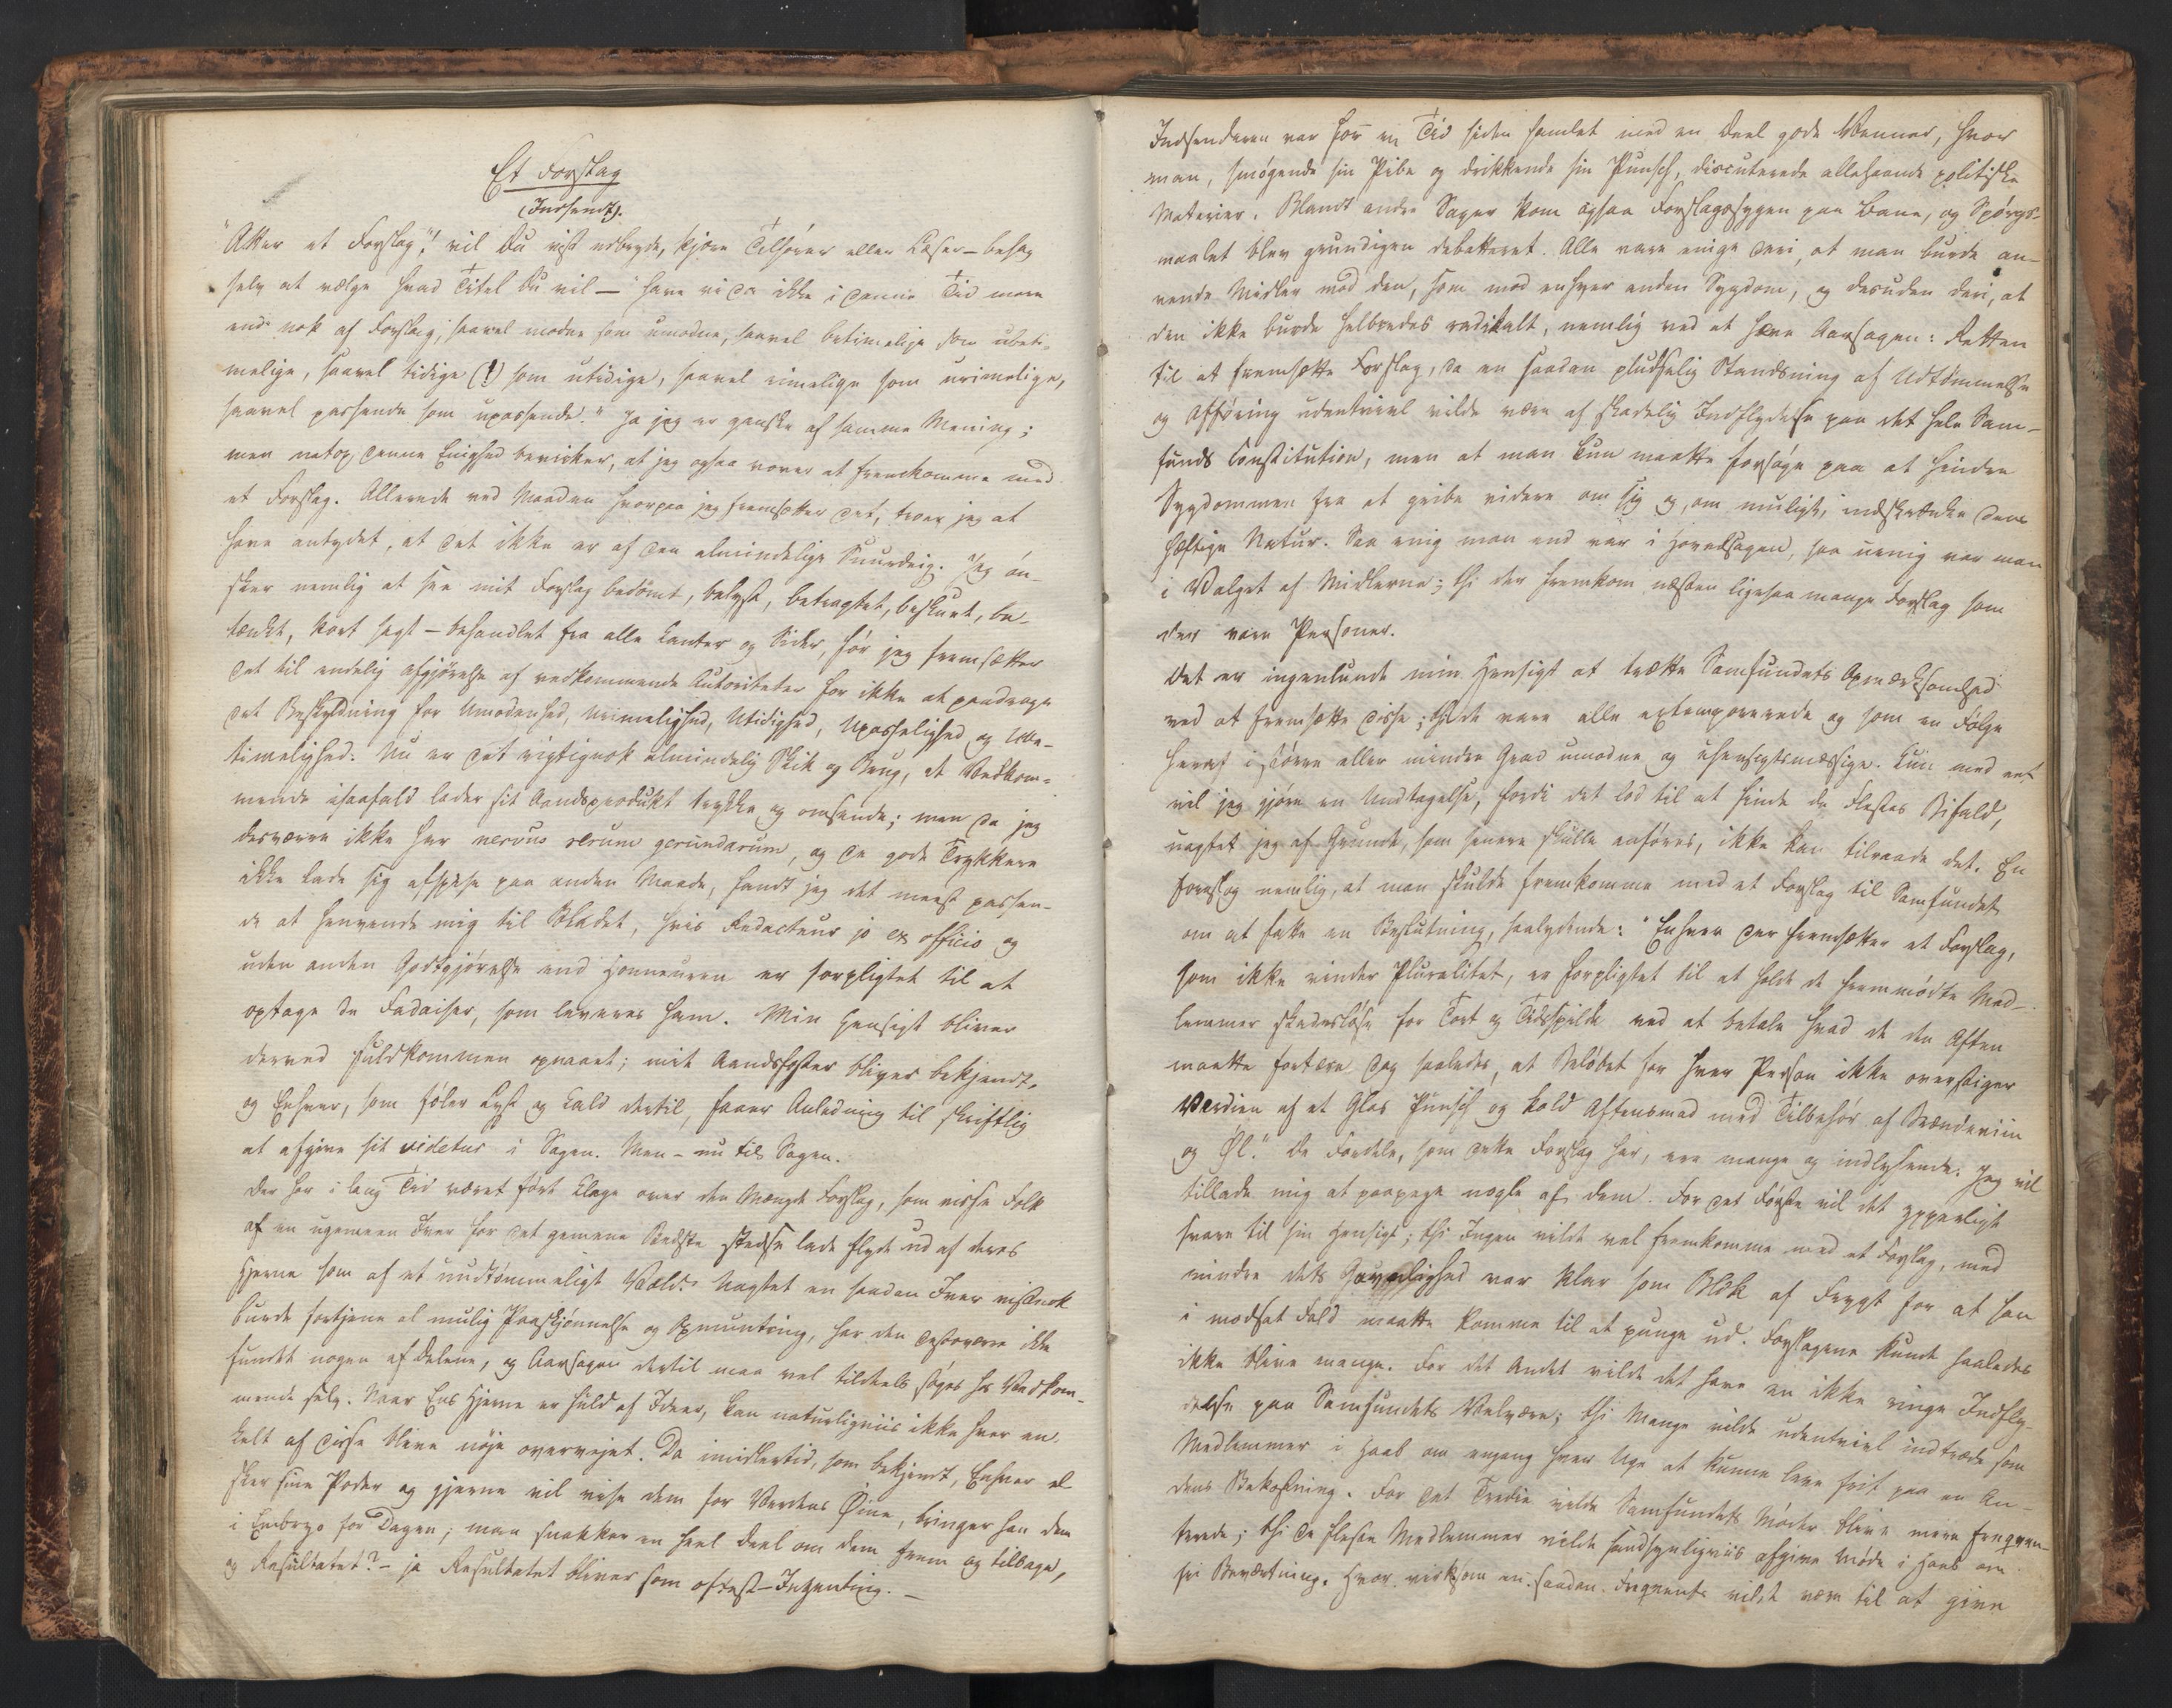 Et Forslag
(Indsendt).
"Atter et Forslag"! vil Du vist udbryde, kjære Tilhører eller Læser – behag
selv at vælge hvad Titel Du vil – "have vi da ikke i denne Tid mere
end nok af Forslag, saavel modne som umodne, saavel betimelige som ubeti-
melige, saavel tidige (!) som utidige, saavel rimelige som urimelige,
saavel passende som upassende." Ja jeg er ganske af samme Mening;
men netop denne Enighed bevirker, at jeg ogsaa vover at fremkomme med
et Forslag. Allerede ved Maaden hvorpaa jeg fremsætter det, troer jeg at
have antydet, at det ikke er af den almindelige Suurdeig. Jeg øn-
sker nemlig at see mit Forslag bedømt, belyst, betragtet, beskuet, be-
tænkt, kort sagt – behandlet fra alle Kanter og Sider, før jeg fremsætter
det til endelig Afgjørelse af vedkommende Autoriteter for ikke at paadrage
det Beskyldning for Umodenhed, Urimelighed, Utidighed, Upasselighed og Ube-
timelighed. Nu er det rigtignok almindelig Skik og Brug, at Vedkom-
mende isaafald lader sit Aandsprodukt trykke og omsende; men da jeg
desværre ikke har nervus rerum gerundarum, og de gode Trykkere
ikke lade sig afspise paa anden Maade, fandt jeg det meest passen-
de at henvende mig til Bladet, hvis Redacteur jo ex officio og
uden anden Godtgjørelse end Honneuren er forpligtet til at
optage de Fadaiser, som leveres ham. Min Hensigt bliver
derved fuldkommen opnaaet; mit Aandsfoster bliver bekjendt,
og Enhver, som føler Lyst og Kald dertil, faaer Anledning til skriftlig
at afgive sit videtur i Sagen. Men – nu til Sagen.
Der har i lang Tid været ført Klage over den Mængde Forslag, som visse Folk
af en ugemeen Iver for det gemene Bedste stedse lade flyde ud af deres
Hjerne som af et uudtømmeligt Væld. Uagtet en saadan Iver vistnok
burde fortjene al mulig Paaskjønnelse og Opmuntring, har den desværre ikke
fundet nogen af Delene, og Aarsagen dertil maa vel tildeels søges hos Vedkom-
mende selv. Naar Ens Hjerne er fuld af Ideer, kan naturligviis ikke hver en-
kelt af disse blive nøje overvejet. Da imidlertid, som bekjendt, Enhver el-
sker sine Poder og gjerne vil vise dem for Verdens Øine, bringer han dem
i Embryo for Dagen; man snakker en heel Deel om dem frem og tilbage,
og Resultatet? – ja Resultatet bliver som oftest – Ingenting. –
Indsenderen var for en Tid siden samlet med en Deel gode Venner, hvor
man, smøgende sin Pibe og drikkende sin Punsch, discuterede allehaande politiske
Materier. Blandt andre Sager kom ogsaa Forslagssygen paa Bane, og Spørgs-
maalet blev grundigen debatteret. Alle vare enige deri, at man burde an-
vende Midler mod den, som mod enhver anden Sygdom, og desuden deri, at
den ikke burde helbredes radikalt, nemlig ved at hæve Aarsagen: Retten
til at fremsætte Forslag, da en saadan pludselig Standsning af Udtømmelse
og Afføring udentvivl vilde være af skadelig Indflydelse paa det hele Sam-
funds Constitution, men at man kun maatte forsøge paa at hindre
Sygdommen fra at gribe videre om sig og, om muligt, indskrænke dens
hæftige Natur. Saa enig man end var i Hovedsagen, saa uenig var man
i Valget af Midlerne; thi der fremkom næsten ligesaa mange Forslag som
der vare Personer.
Det er ingenlunde min Hensigt at trætte Samfundets Opmærksomhed
ved at fremsætte disse; thi de vare alle extemporerede og som en Følge
heraf i større eller mindre Grad umodne og uhensigtsmæssige. Kun med eet
vil jeg gjøre en Undtagelse, fordi det lod til at finde de Flestes Bifald,
uagtet jeg af Grunde, som senere skulle anføres, ikke kan tilraade det. En
foreslog nemlig, at man skulde fremkomme med et Forslag til Samfundet
om at fatte en Beslutning, saalydende: "Enhver der fremsætter et Forslag,
som ikke vinder Pluralitet, er forpligtet til at holde de fremmødte Med-
lemmer skadesløse for Tort og Tidsspilde ved at betale hvad de den Aften
maatte fortære dog saaledes, at Beløbet for hver Person ikke overstiger
Værdien af et Glas Punsch og kold Aftensmad med Tilbehør af Brændeviin
og Øl." De Fordele, som dette Forslag har, ere mange og indlysende. Jeg vil
tillade mig at paapege nogle af dem. For det Første vil det ypperligt
svare til sin Hensigt; thi Ingen vilde vel fremkomme med et Forslag, med
mindre dets Gavnlighed var klar som Blæk af Frygt for at han
i modsat Fald maatte komme til at punge ud. Forslagene kunde saaledes
ikke blive mange. For det Andet vilde det have en ikke ringe Indfly-
delse paa Samfundets Velvære; thi Mange vilde udentvivl indtræde som
Medlemmer i Haab om engang hver Uge at kunne leve frit paa en An-
dens Bekostning. For det Tredie vilde Samfundets Møder blive mere frequen-
terede; thi de fleste Medlemmer vilde sandsynligviis afgive Møde i Haab om
fri Beværtning. Hvor virksom en saadan Frequents vilde være til at give